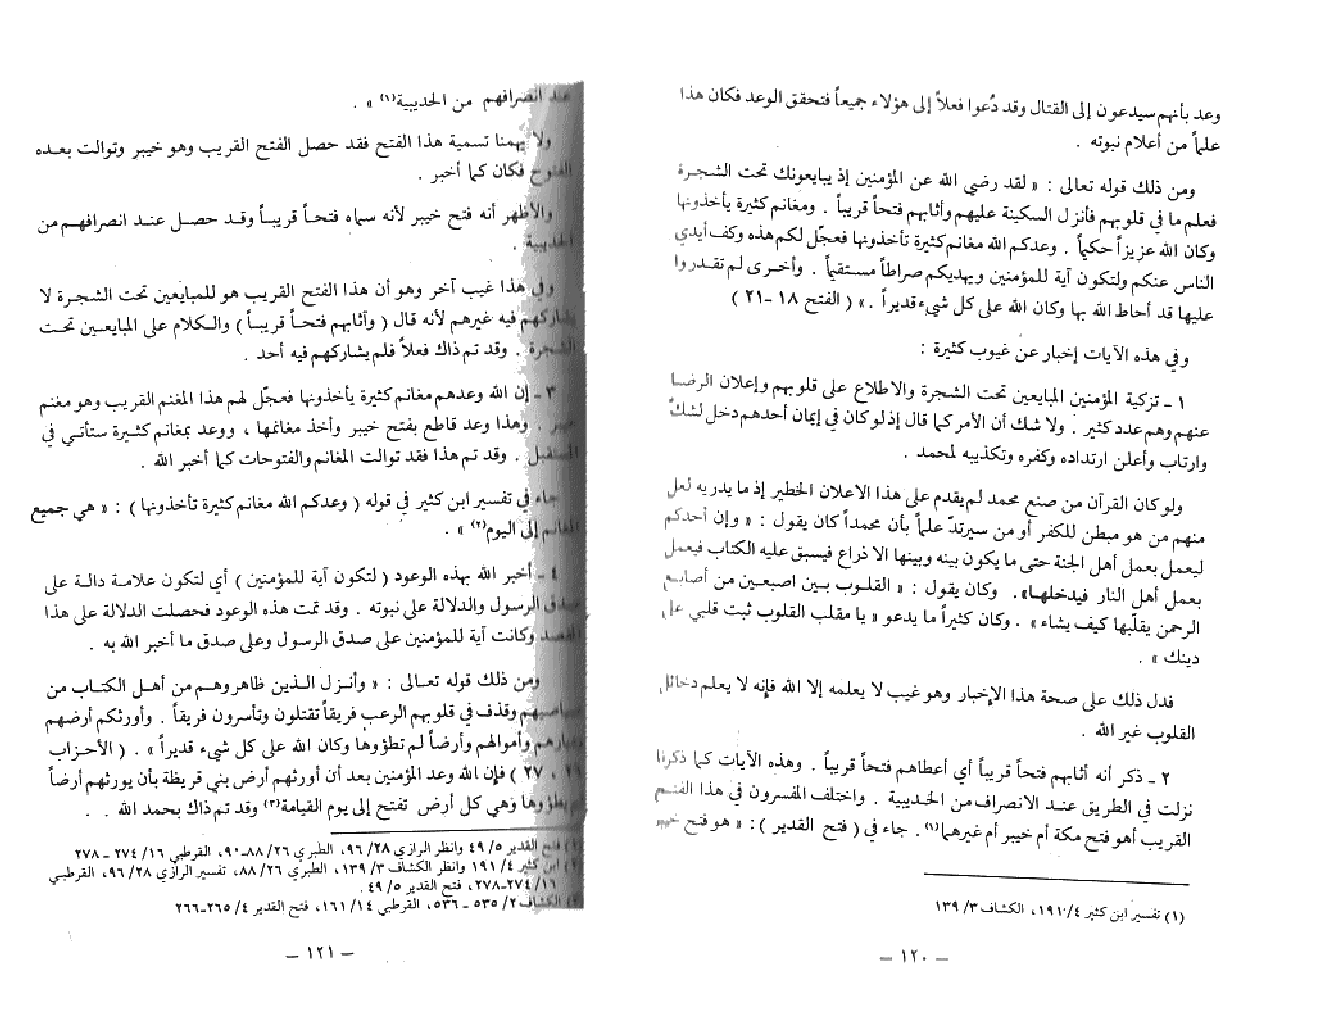 وعد بأنهم سيدعون إلى القتال وقد دُعوا فعلاً إلى هؤلاء جميعاً فتحقق الوعد فكان هذا
علماً من أعلام نبوته .
ومن ذلك قوله تعالى : « لقد رضي الله عن المؤمنين إذ يبايعونك تحت الشجرة
فعلم ما في قلوبهم فأنزل السكينة عليهم وأثابهم فتحاً قريباً . ومغانم كثيرة يأخذونها
وكان الله عزيزاً حكيماً . وعدكم الله مغانم كثيرة تأخذونها فعجّل لكم هذه وكف أيدي
الناس عنكم ولتكون آية للمؤمنين ويهديكم صراطاً مستقيماً . وأخرى لم تقدروا
عليها قد أحاط الله بها وكان الله على كل شيء قديراً . » ( الفتح ١٨ -٢١ )
وفي هذه الآيات إخبار عن غيوب كثيرة :
١ ـ تزكية المؤمنين المبايعين تحت الشجرة والاطلاع على قلوبهم وإعلان الرضا
عنهم وهم عدد كثير . ولا شك أن الأمر كما قال إذ لو كان في إيمان أحدهم دخل لشك
وارتاب وأعلن ارتداده وكفره وتكذيبه لمحمد .
ولو كان القرآن من صنع محمد لم يقدم على هذا الاعلان الخطير إذ ما يدريه لعل
منهم من هو مبطن للكفر أو من سيرتدّ علماً بأن محمداً كان يقول : « وإن أحدكم
ليعمل بعمل أهل الجنة حتى ما يكون بينه وبينها الا ذراع فيسبق عليه الكتاب فيعمل
بعمل أهل النار فيدخلها» . وكان يقول : « القلوب بين اصبعين من أصابع
الرحمن يقلّبها كيف يشاء » . وكان كثيراً ما يدعو « يا مقلب القلوب ثبت قلبي على
دينك » .
فدل ذلك على صحة هذا الإخبار وهو غيب لا يعلمه إلا الله فإنه لا يعلم دخائل
القلوب غير الله .
٢ ـ ذكر أنه أثابهم فتحاً قريباً أي أعطاهم فتحاً قريباً . وهذه الآيات كما ذكرنا
نزلت في الطريق عند الانصراف من الحديبية . واختلف المفسرون في هذا الفتح
القريب أهو فتح مكة أم خيبر أم غيرهما(١) . جاء في ( فتح القدير ) : « هو فتح خيبر
(١) تفسير ابن كثير ٤/ ١٩١، الكشاف ٣/ ١٣٩
— ١٢٠ —
عند انصرافهم من الحديبية(١) » .
ولا يهمنا تسمية هذا الفتح فقد حصل الفتح القريب وهو خيبر وتوالت بعده
الفتوح فكان كما أخبر .
والأظهر أنه فتح خيبر لأنه سماه فتحاً قريباً وقد حصل عند انصرافهم من
الحديبية .
وفي هذا غيب آخر وهو أن هذا الفتح القريب هو للمبايعين تحت الشجرة لا
يشاركهم فيه غيرهم لأنه قال ( وأثابهم فتحاً قريباً ) والكلام على المبايعين تحت
الشجرة . وقد تم ذاك فعلاً فلم يشاركهم فيه أحد .
٣ ـ إن الله وعدهم مغانم كثيرة يأخذونها فعجّل لهم هذا المغنم القريب وهو مغنم
خيبر . وهذا وعد قاطع بفتح خيبر وأخذ مغانمها ، ووعد بمغانم كثيرة ستأتي في
المستقبل . وقد تم هذا فقد توالت المغانم والفتوحات كما أخبر الله .
جاء في تفسير ابن كثير في قوله ( وعدكم الله مغانم كثيرة تأخذونها ) : « هي جميع
المغانم إلى اليوم(٢) » .
٤ ـ أخبر الله بهذه الوعود ( لتكون آية للمؤمنين ) أي لتكون علامة دالة على
صدق الرسول والدلالة على نبوته . وقد تمت هذه الوعود فحصلت الدلالة على هذا
القصد وكانت آية للمؤمنين على صدق الرسول وعلى صدق ما أخبر الله به .
ومن ذلك قوله تعالى : « وأنزل الذين ظاهروهم من أهل الكتاب من
صياصيهم وقذف في قلوبهم الرعب فريقاً تقتلون وتأسرون فريقاً . وأورثكم أرضهم
وديارهم وأموالهم وأرضاً لم تطؤوها وكان الله على كل شيء قديراً » . ( الأحزاب
٢٦ ، ٢٧ ) فإن الله وعد المؤمنين بعد أن أورثهم أرض بني قريظة بأن يورثهم أرضاً
لم يطؤوها وهي كل أرض تفتح إلى يوم القيامة(٣) وقد تم ذاك بحمد الله .
(١) فتح القدير ٥/ ٤٩ وانظر الرازي ٢٨/ ٩٦، الطبري ٢٦/ ٨٨ـ٩٠، القرطبي ١٦/ ٢٧٤ ـ ٢٧٨
(٢) ابن كثير ٤/ ١٩١ وانظر الكشاف ٣/ ١٣٩، الطبري ٢٦/ ٨٨، تفسير الرازي ٢٨/ ٩٦، القرطبي
١٦/ ٢٧٤ـ٢٧٨، فتح القدير ٥/ ٤٩ .
(٣) الكشاف ٢/ ٥٣٥ ـ ٥٣٦، القرطبي ١٤/ ١٦١، فتح القدير ٤/ ٢٦٥-٢٦٦
— ١٢١ —